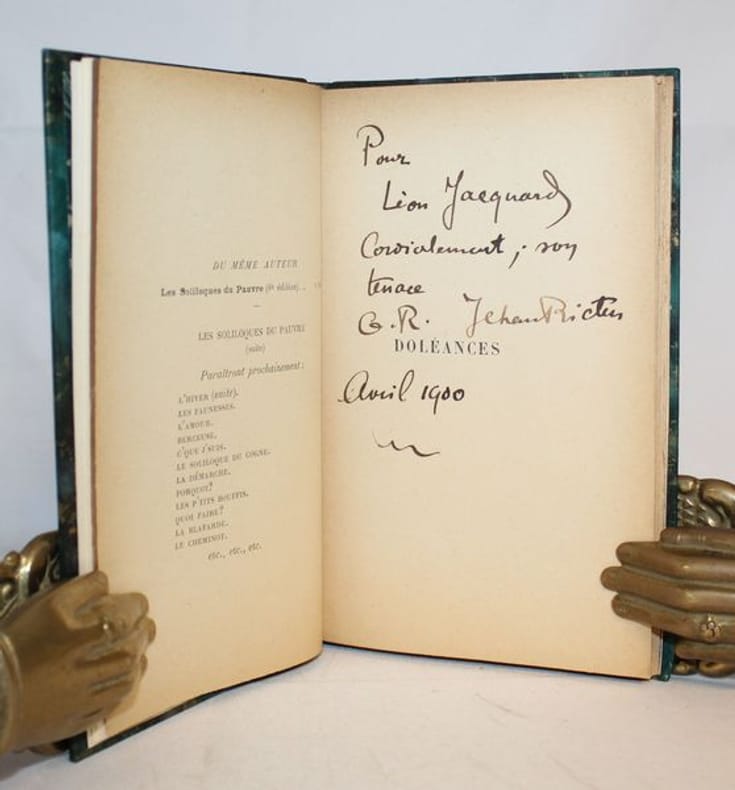 DU MÊME AUTEUR
Les Soliloques du Pauvre (6e édition) . .
LES SOLILOQUES DU PAUVRE
(suite)
Paraîtront prochainement :
L'HIVER (suite).
LES FAUNESSES.
L'AMOUR.
BERCEUSE.
C'QUE J'SUIS.
LE SOLILOQUE DU COGNE.
LA DÉMARCHE.
POURQUOI?
LES P'TITS BOUFFIS.
QUOI FAIRE?
LA BLAFARDE.
LE CHEMINOT.
etc., etc., etc.
Pour
Léon Jacquard
Cordialement, son
tenace
G. R. Jehan Rictus
DOLÉANCES
Avril 1900